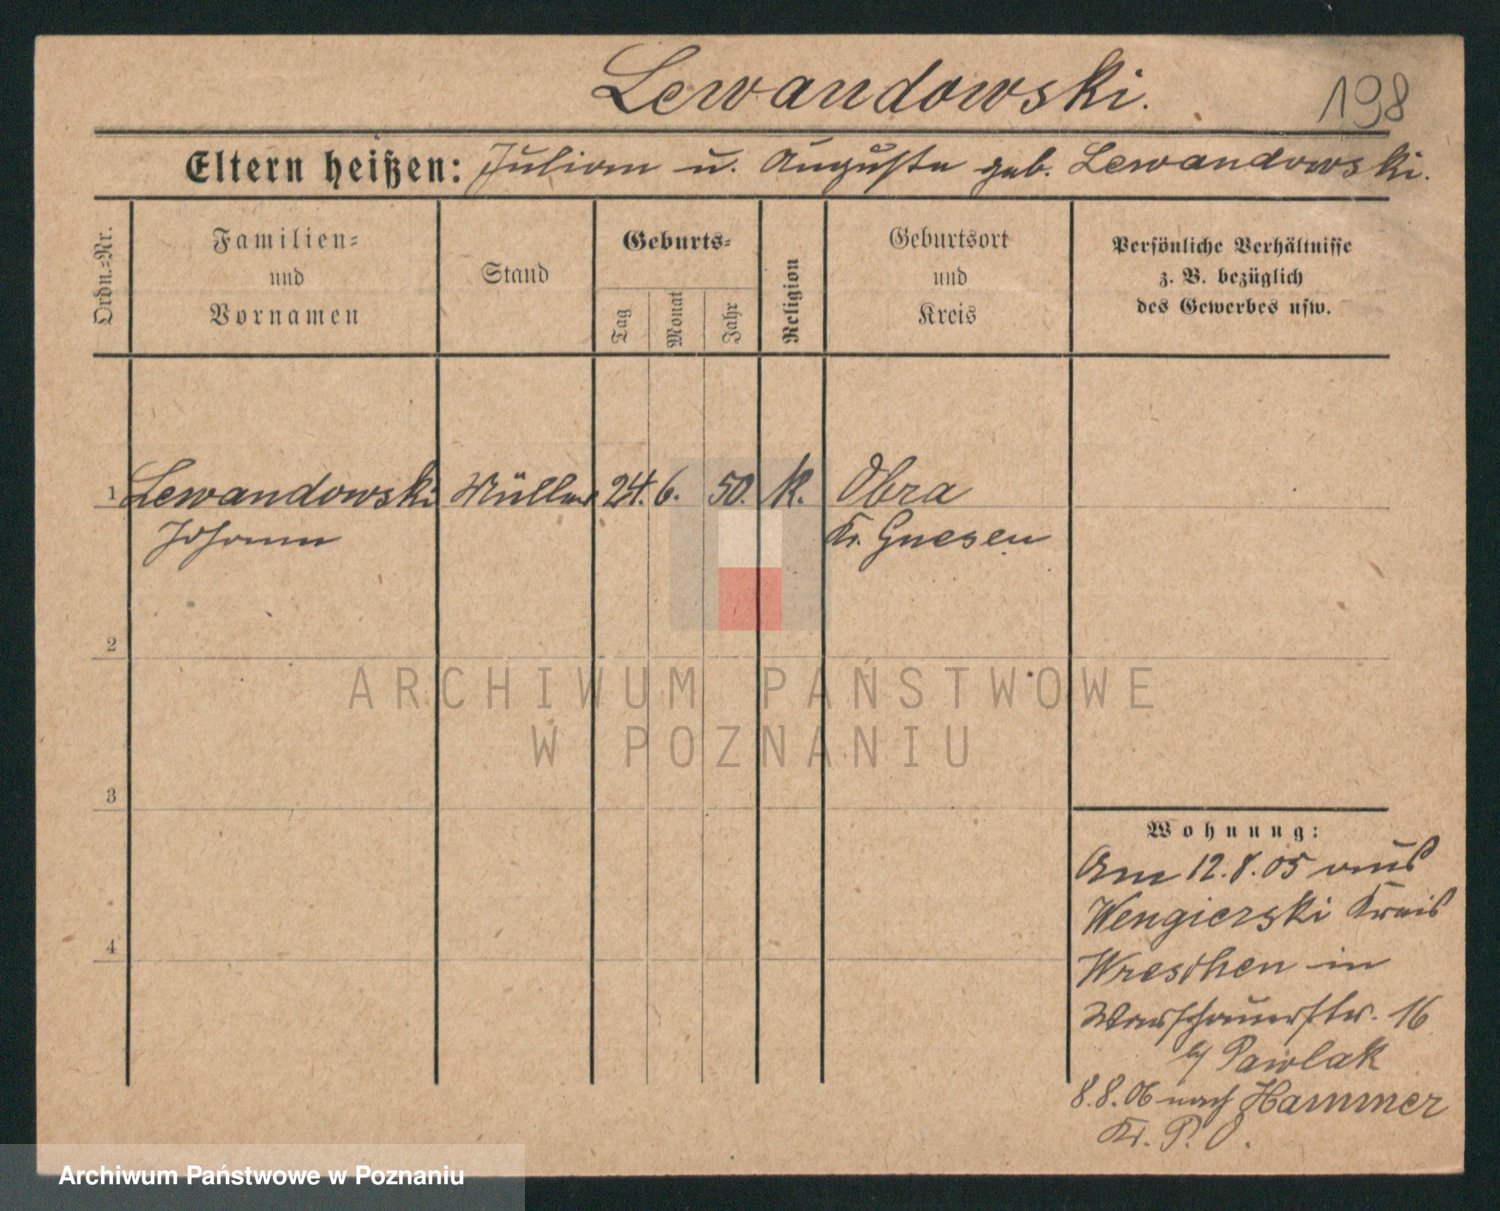 Lewandowski.
198
Eltern heißen: Julian u. Auguste geb. Lewandowski.
Ordn.-Nr.
Familien-
und
Vornamen
Stand
Geburts-
Tag
Monat
Jahr
Religion
Geburtsort
und
Kreis
Persönliche Verhältnisse
z. B. bezüglich
des Gewerbes usw.
1 Lewandowski Müller 24. 6. 50. K. Obra
Johann Kr. Gnesen
2
ARCHIWUM PAŃSTWOWE
W POZNANIU
3
Wohnung:
Am 12.8.05 aus
Wengierski Kreis
4
Wreschen in
Warschauerstr. 16
b/ Pawlak
8.8.06 nach Hammer
Kr. P. O.
Archiwum Państwowe w Poznaniu